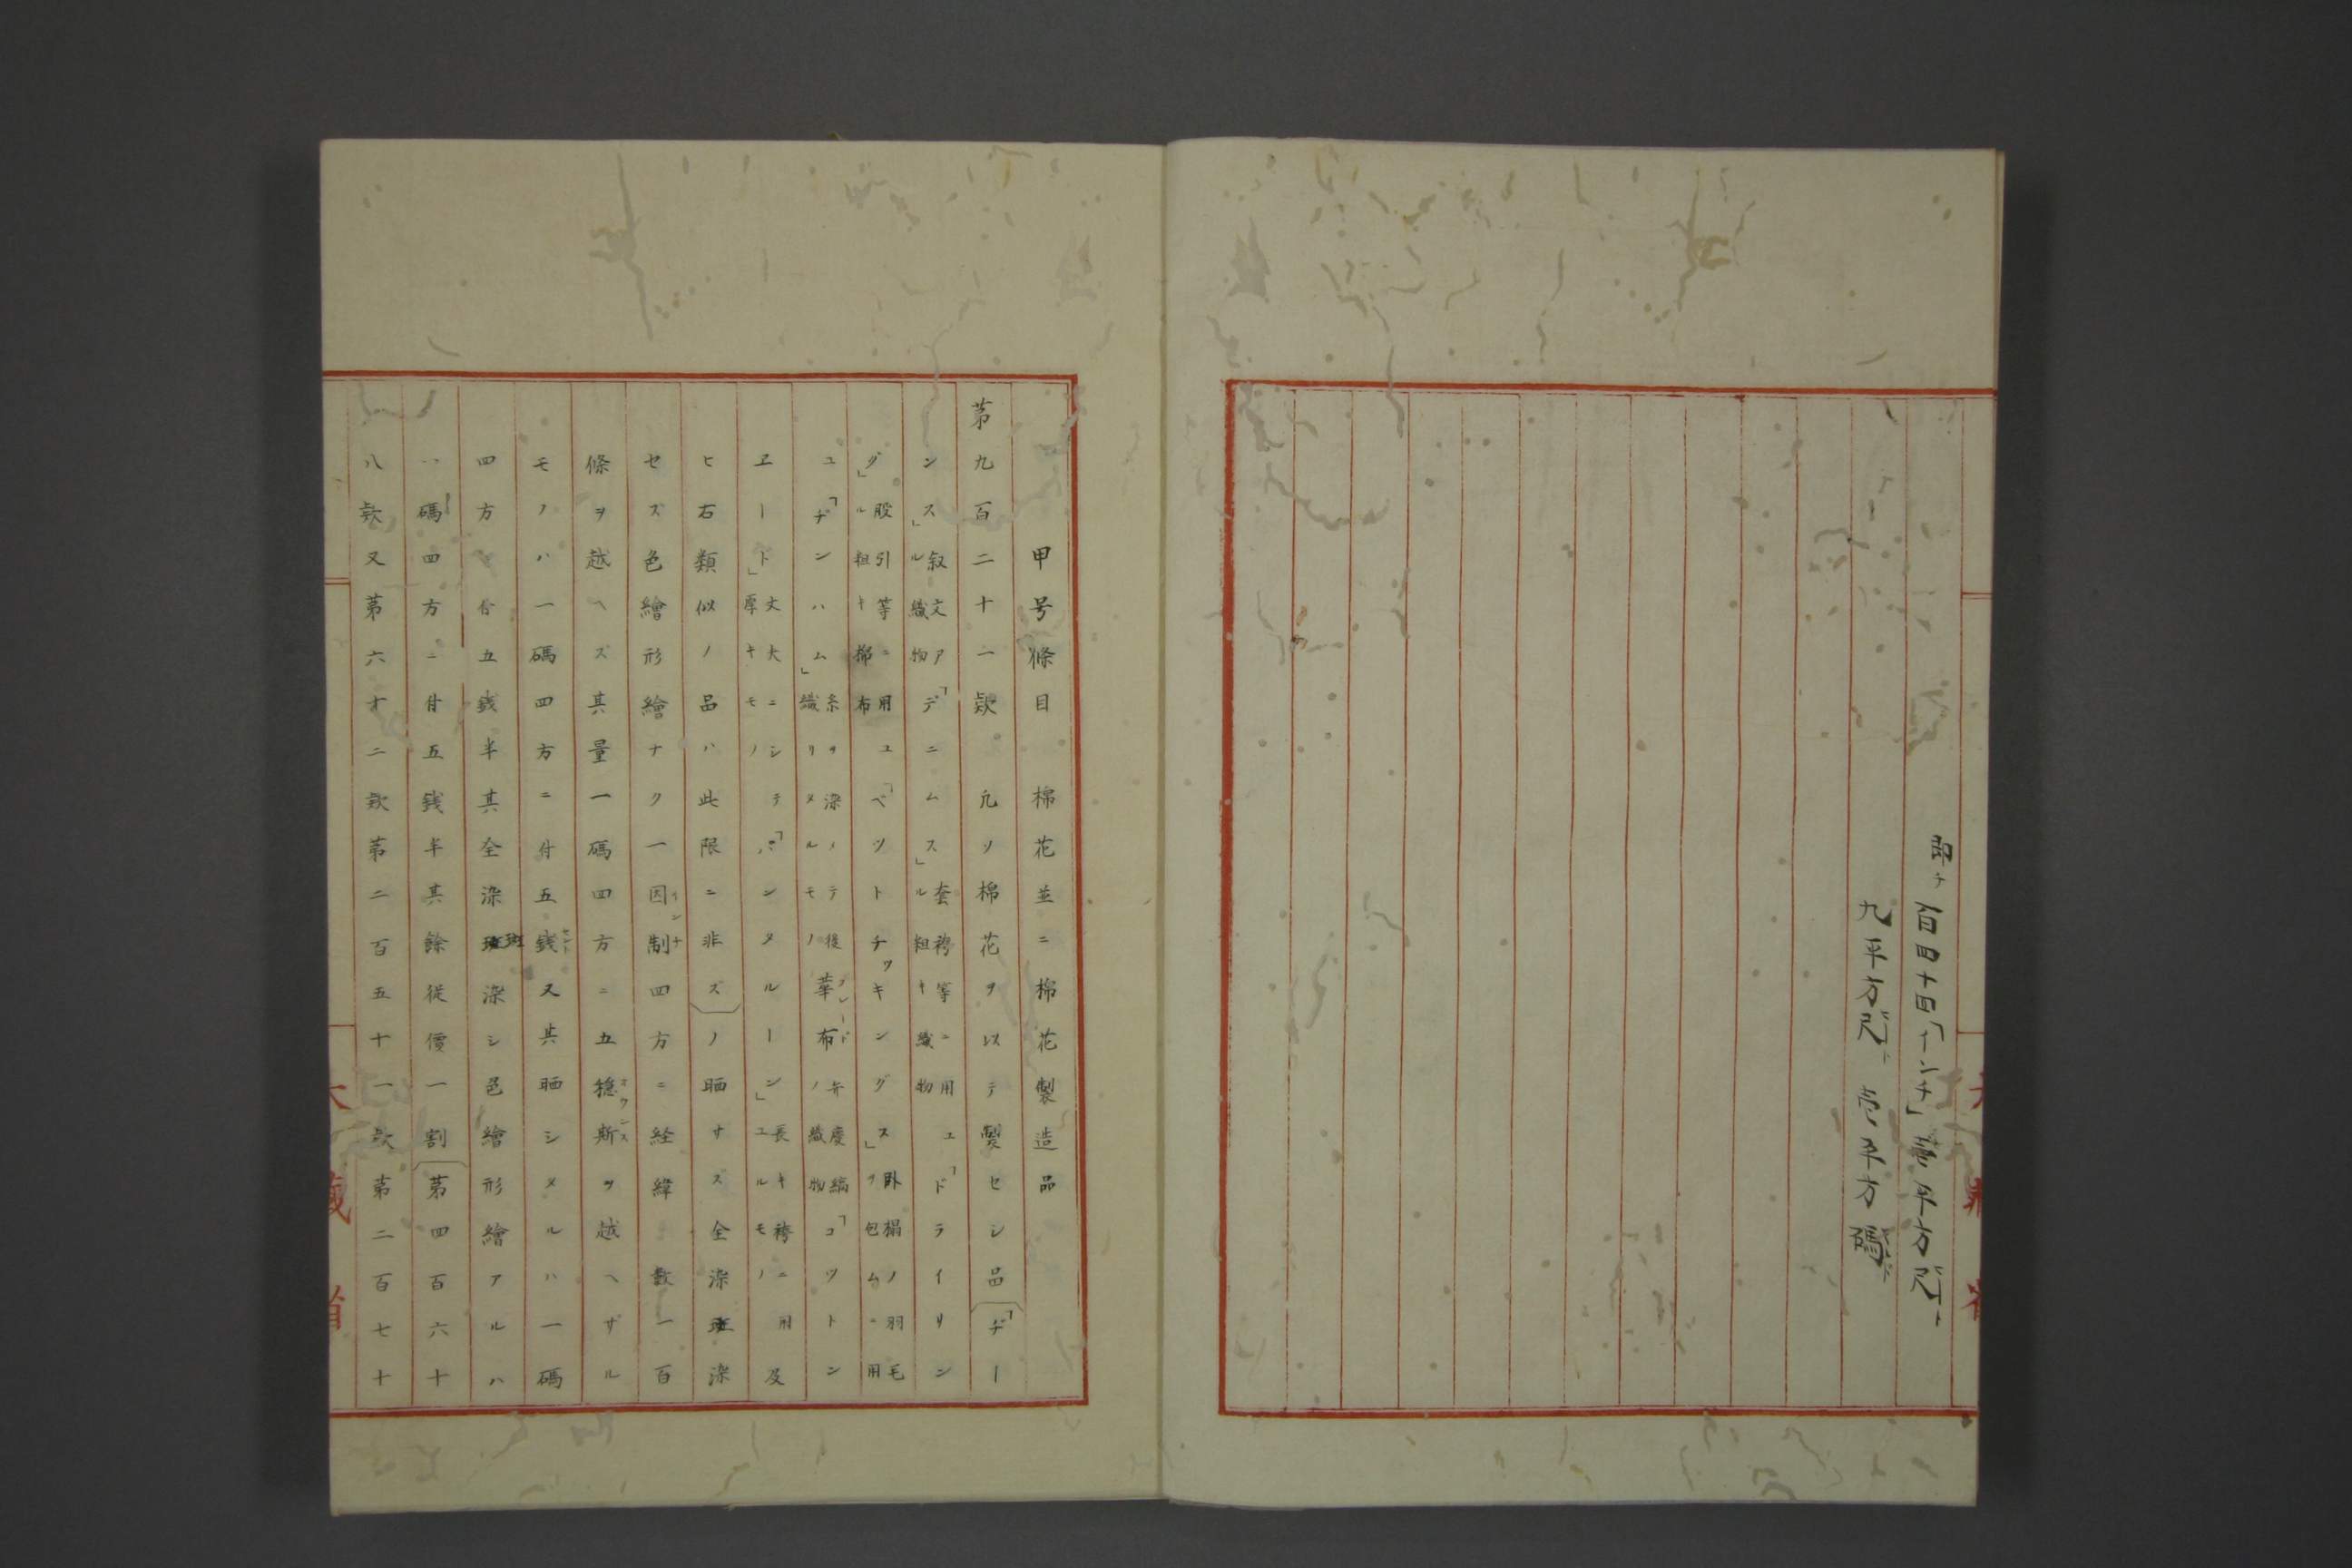 即チ百四十四「インチ」壱平方尺
九平方尺 壱平方碼
甲号條目 棉花並ニ棉花製造品
第九百二十一欵 凢ソ棉花ヲ以テ製セシ品(「ヂー
ンス」叙文アル織物「デニムス」套袴等ニ用ユル粗キ織物「ドライリン
グ」股引等ニ用ユル粗キ棉布「ベツトチツキングス」臥榻ノ羽毛ヲ包ムニ用
ユ「ヂンハム」糸ヲ染メテ後織リタルモノ華布ノ弁慶縞織物「コツトン
エード」丈大ニシテ厚キモノ「パンタルーン」長キ袴ニ用ユルモノ及
ヒ右類似ノ品ハ此限ニ非ズ)ノ晒サズ全染斑染
セズ色繪形繪ナク一因制四方ニ経緯数一百
條ヲ越ヘズ其量一碼四方ニ五穏斯ヲ越ヘザル
モノハ一碼四方ニ付五銭又其晒シタルハ一碼
四方ニ付五銭半其全染斑染シ色繪形繪アルハ
一碼四方ニ付五銭半其餘従價一割(第四百六十
八欵又第六十二欵第二百五十一欵第二百七十
大藏省